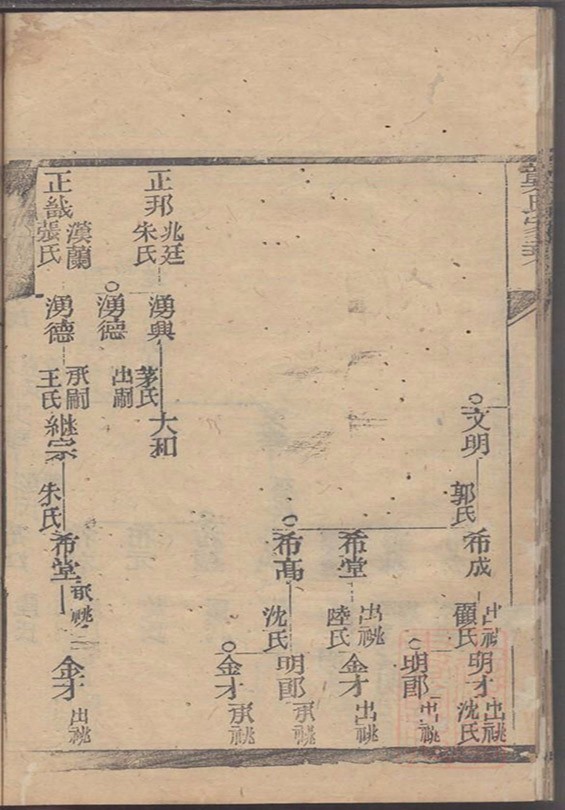 文明
郭氏
希成
出祧
顧氏
明才
出祧
沈氏
明郎
出祧
希堂
出祧
陸氏
金才
出祧
希高
沈氏
明郎
承祧
金才
承祧
正邦
兆廷
朱氏
湧興
茅氏
大和
湧德
出嗣
正哉
漢蘭
張氏
湧德
承嗣
王氏
継宗
朱氏
希堂
承祧
金才
出祧